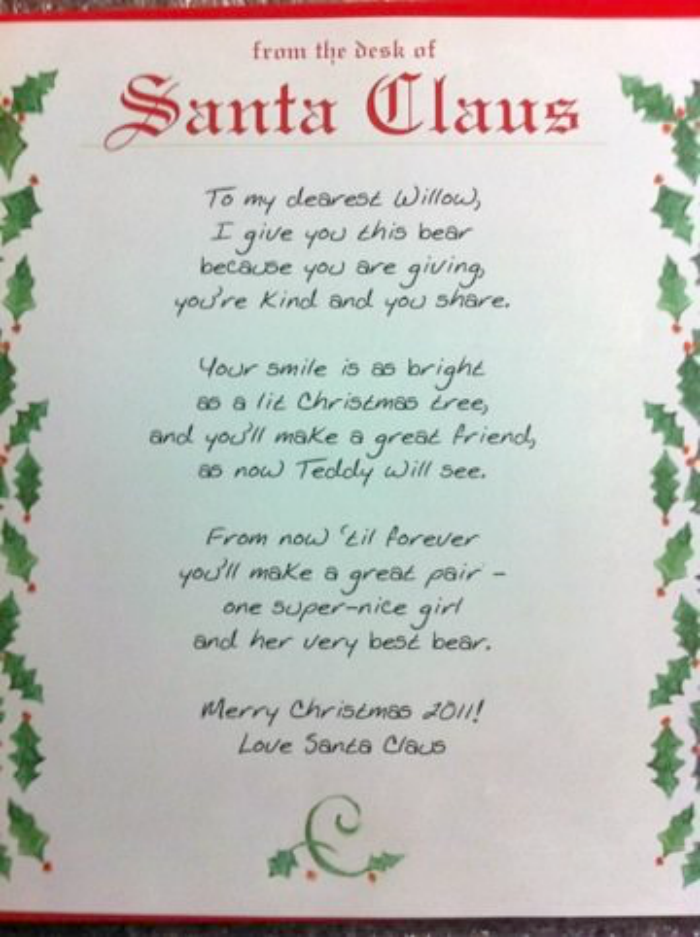 from the desk of
Santa Claus
To my dearest Willow,
I give you this bear
because you are giving,
you're kind and you share.
Your smile is as bright
as a lit Christmas tree,
and you'll make a great friend,
as now Teddy will see.
From now 'til forever
you'll make a great pair -
one super-nice girl
and her very best bear.
Merry Christmas 2011!
Love Santa Claus
C